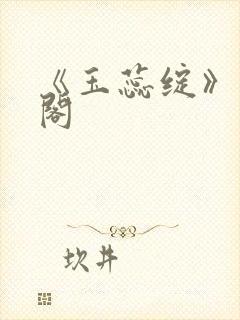 《玉蕊绽》
阁
坎井